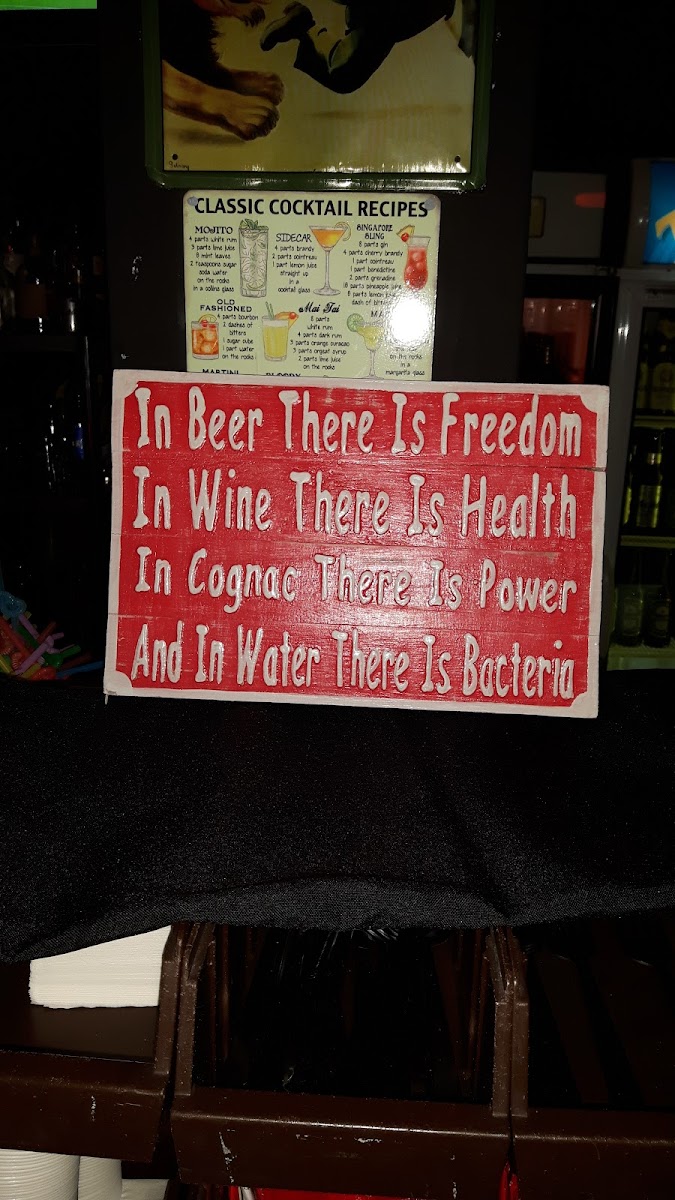 CLASSIC COCKTAIL RECIPES
MOJITO
4 parts white rum
3 parts lime juice
6 mint leaves
2 teaspoons sugar
soda water
on the rocks
in a collins glass
SIDECAR
4 parts brandy
2 parts cointreau
1 part lemon juice
straight up
in a
cocktail glass
SINGAPORE
SLING
6 parts gin
4 parts cherry brandy
1 part cointreau
1 part benedictine
2 parts grenadine
18 parts pineapple juice
8 parts lemon
dash of bitters
OLD
FASHIONED
4 parts bourbon
2 dashes of
bitters
1 sugar cube
1 part water
on the rocks
Mai Tai
8 parts
white rum
4 parts dark rum
3 parts orange curacao
3 parts orgeat syrup
2 parts lime juice
on the rocks
on the rocks
in a
margarita glass
MARTINI
BLOODY
In Beer There Is Freedom
In Wine There Is Health
In Cognac There Is Power
And In Water There Is Bacteria